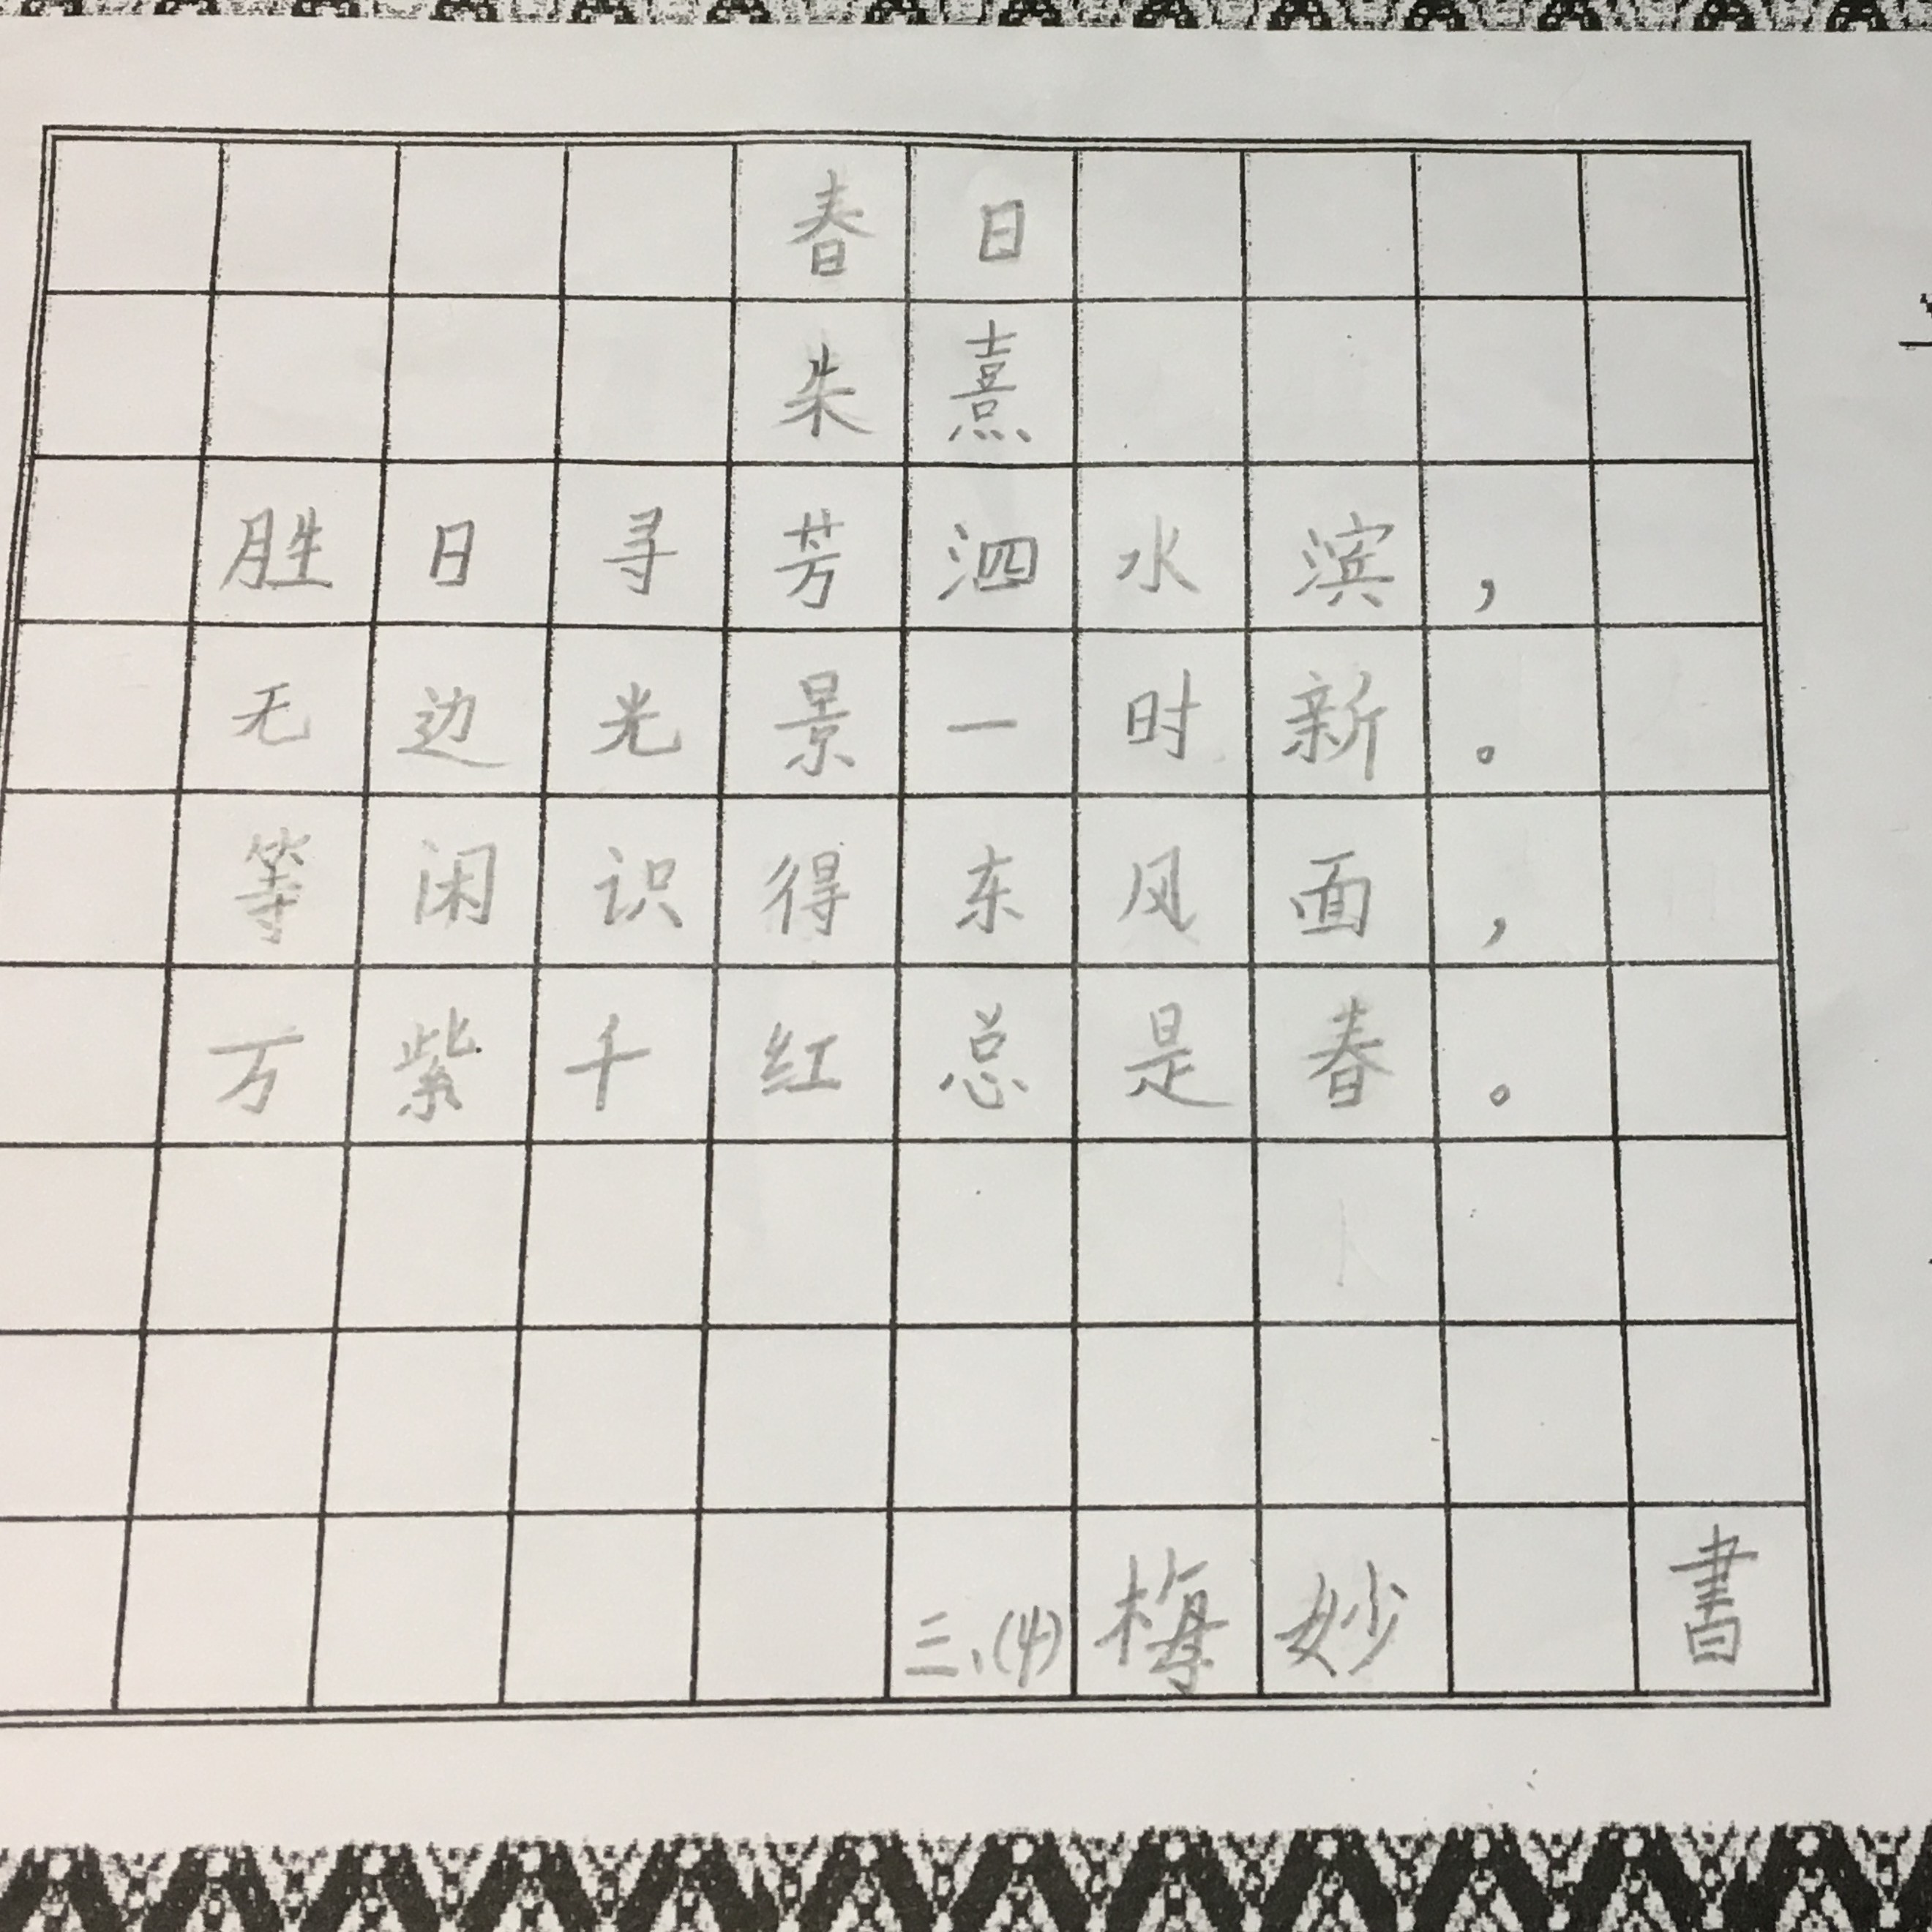 春日
朱熹
胜日寻芳泗水滨，
无边光景一时新。
等闲识得东风面，
万紫千红总是春。
三、(4) 梅妙 書